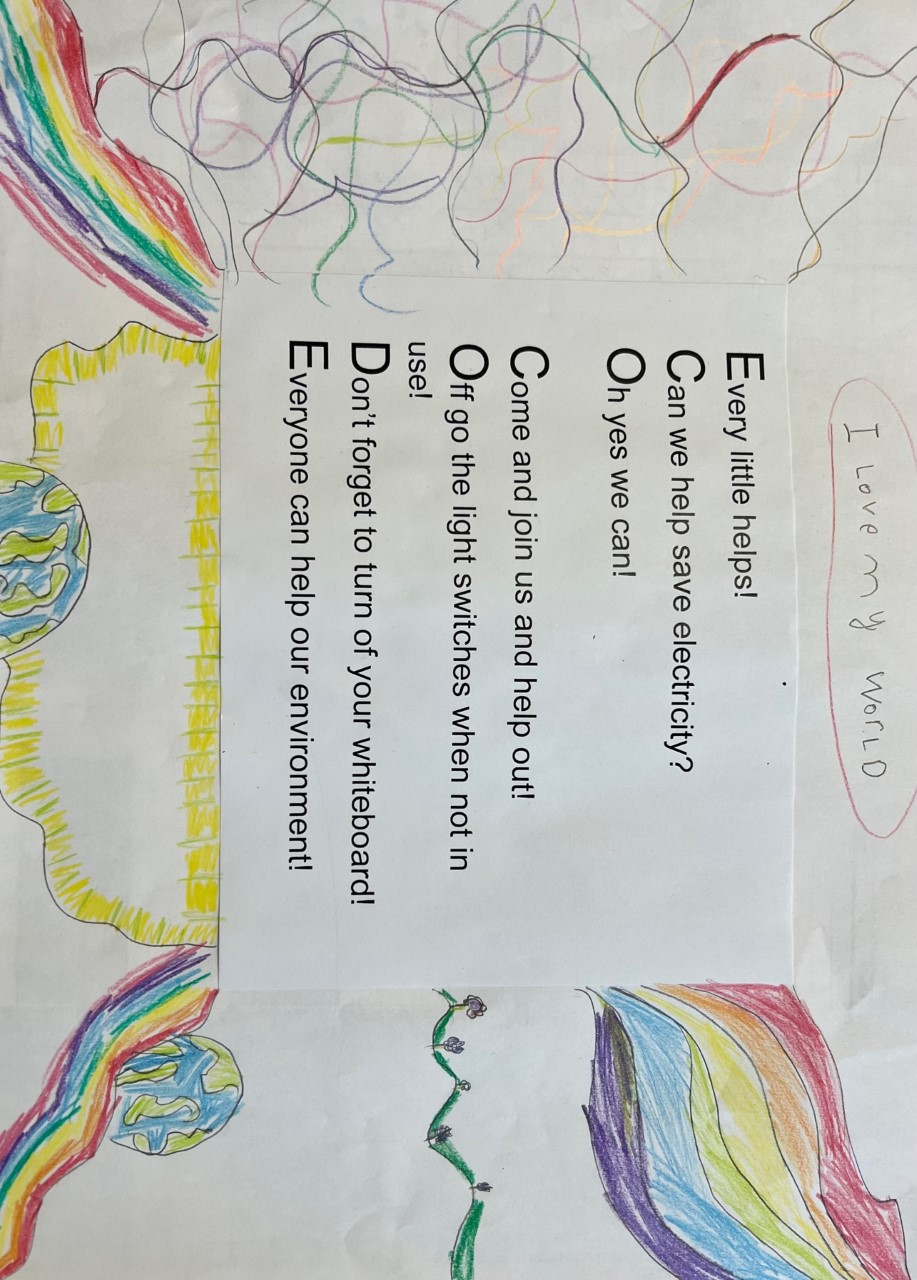 I Love my WorLD
Every little helps!
Can we help save electricity?
Oh yes we can!
Come and join us and help out!
Off go the light switches when not in
use!
Don't forget to turn of your whiteboard!
Everyone can help our environment!